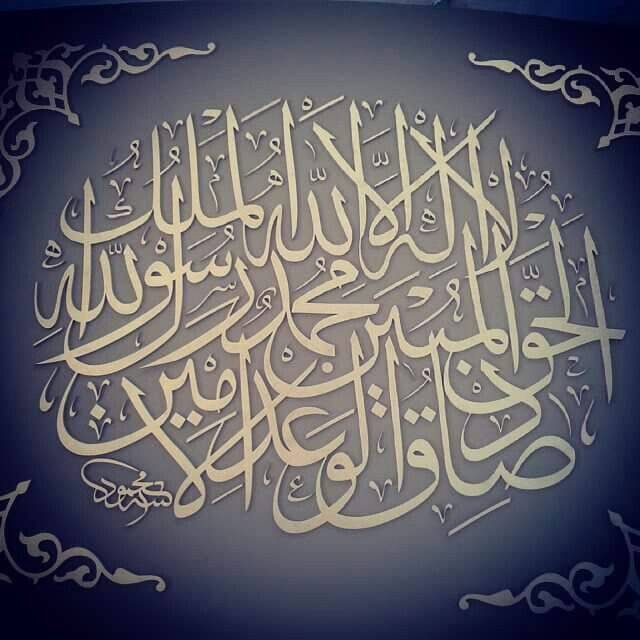 لا اله الا الله الملك
الحق المبين محمد رسول الله
صادق الوعد الامين